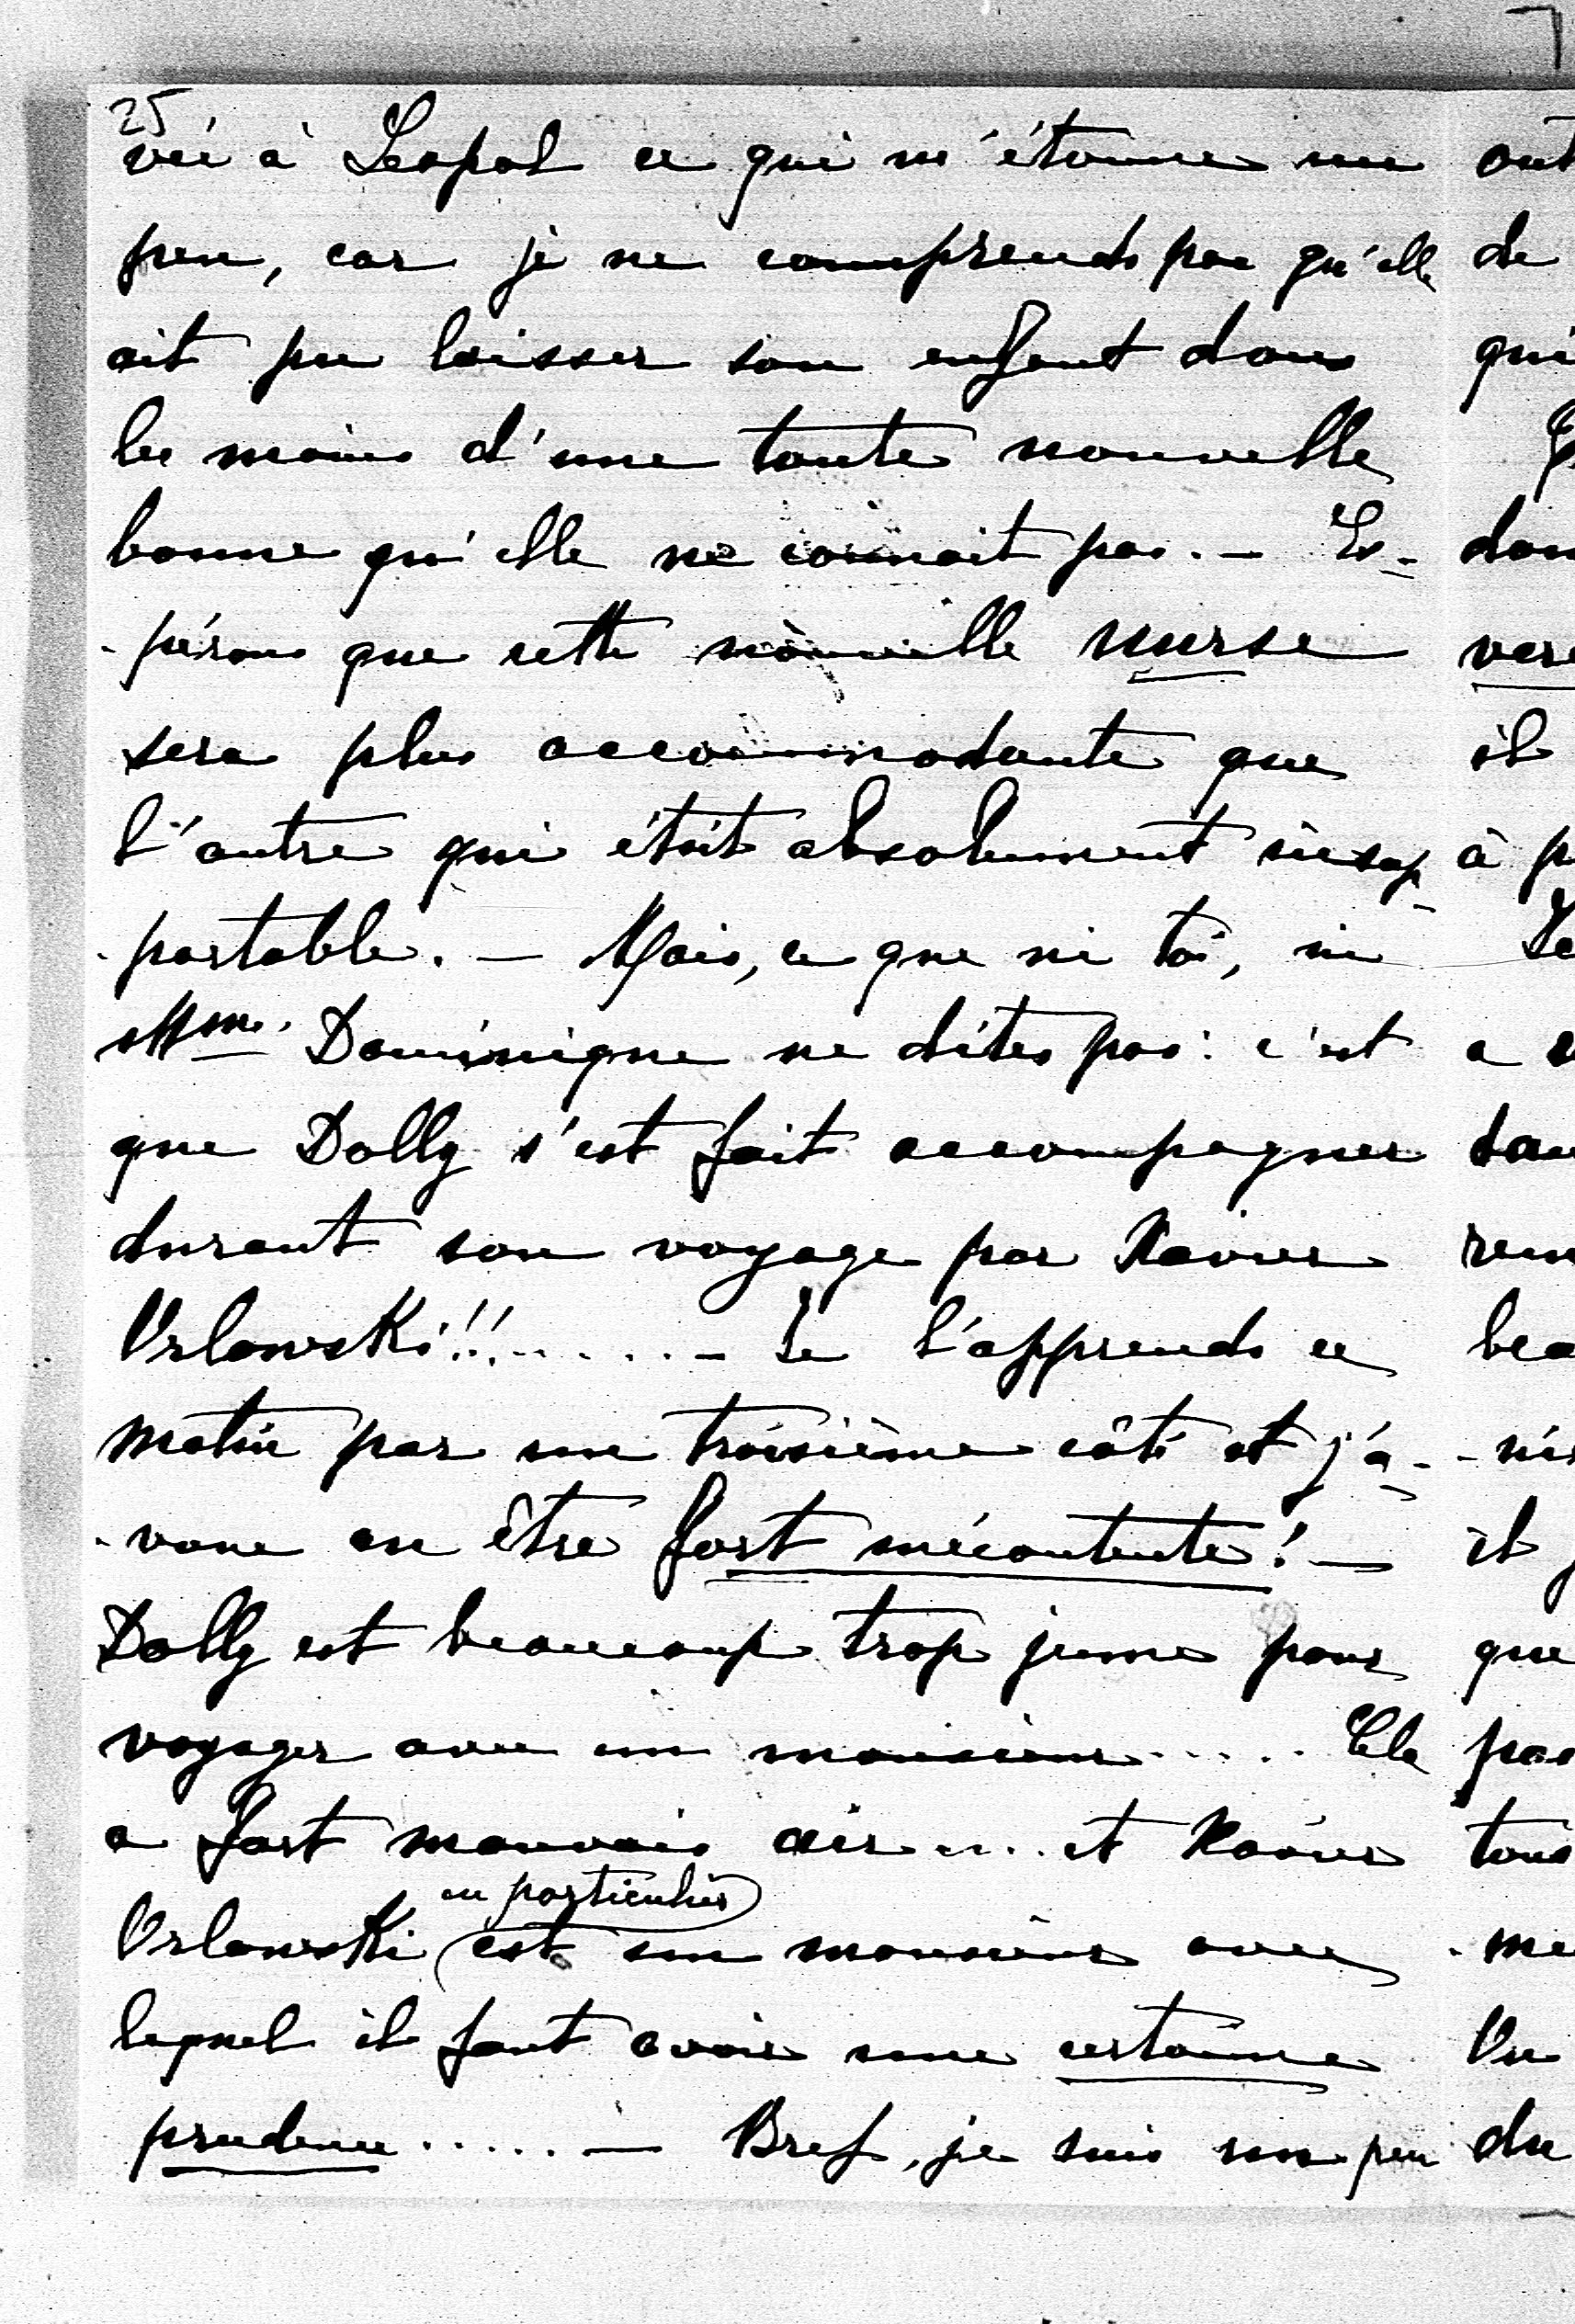 25
vée à Léopol ce qui m'étonne un
peu, car je ne comprends pas qu'elle
ait pu laisser son enfant dans
les mains d'une toute nouvelle
bonne qu'elle ne connait pas. — Es-
-pérons que cette nouvelle nurse
sera plus accommodante que
l'autre qui était absolument insup-
-portable. — Mais, ce que ni toi, ni
Mme. Dominique ne dites pas: c'est
que Dolly s'est fait accompagner
durant son voyage par Xavier
Orlowski!!...... — Je l'apprends ce
matin par un troisième côté et j'a-
-voue en être fort mécontente! —
Dolly est beaucoup trop jeune pour
voyager avec un monsieur..... Cela
a fort mauvais air.... et Xavier
en particulier
Orlowski est un monsieur avec
lequel il faut avoir une certaine
prudence..... — Bref, je suis un peu
ont
de
qui
dan
vere
il
à p
Le
a
dan
ren
bea
-nis
il
que
pas
tous
-me
On
du